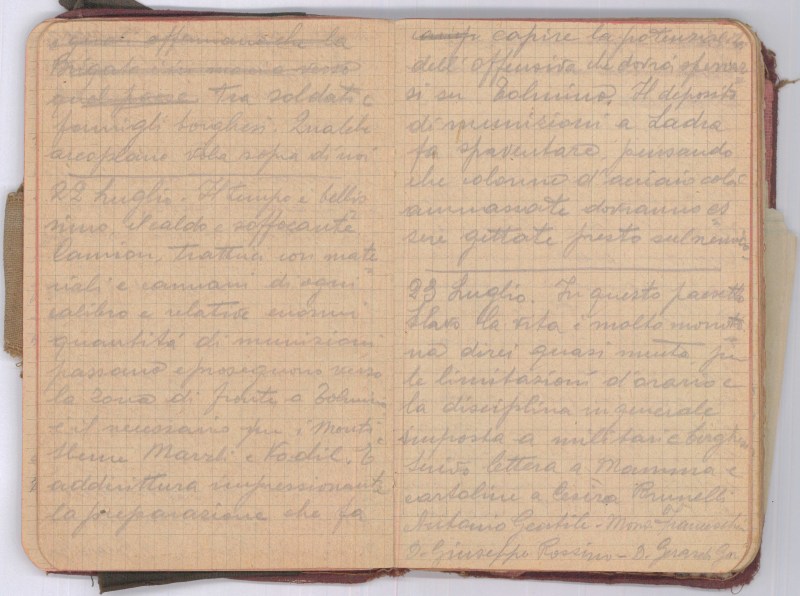 i quali affermano che la
Brigata
quel paese Tra soldati e
famigli borghesi. Qualche
aeroplano vola sopra di noi
22 Luglio. Il tempo e bellis
simo, il caldo e soffocante
Camion, trattrici con mate
riali e cannoni di ogni
calibro e relative enormi
quantità di munizioni
passano e proseguono verso
la zona di fronte a Tolmino
e il necessario per i monti
Marzli e Vodil. E
addirittura impressionante
la preparazione che fa
capire la potenzialità
dell'offensiva che dovrà sferrar
si su Tolmino. Il deposito
di munizioni a Ladra
fa spaventare, pensando
che colonne d'acciaio colà
ammassate dovranno es
sere gettate presto sul nemico
23 Luglio. In questo paesetto
slavo la vita è molto monoto
na direi quasi muta per
le limitazioni d'orario e
la disciplina in generale
imposta a militari e borghesi
Scrivo lettera a Mamma e
cartoline a Cesira Brunelli
Antonio Gentile - Mons Francesch
D. Giuseppe Rossino - D. Gerardo